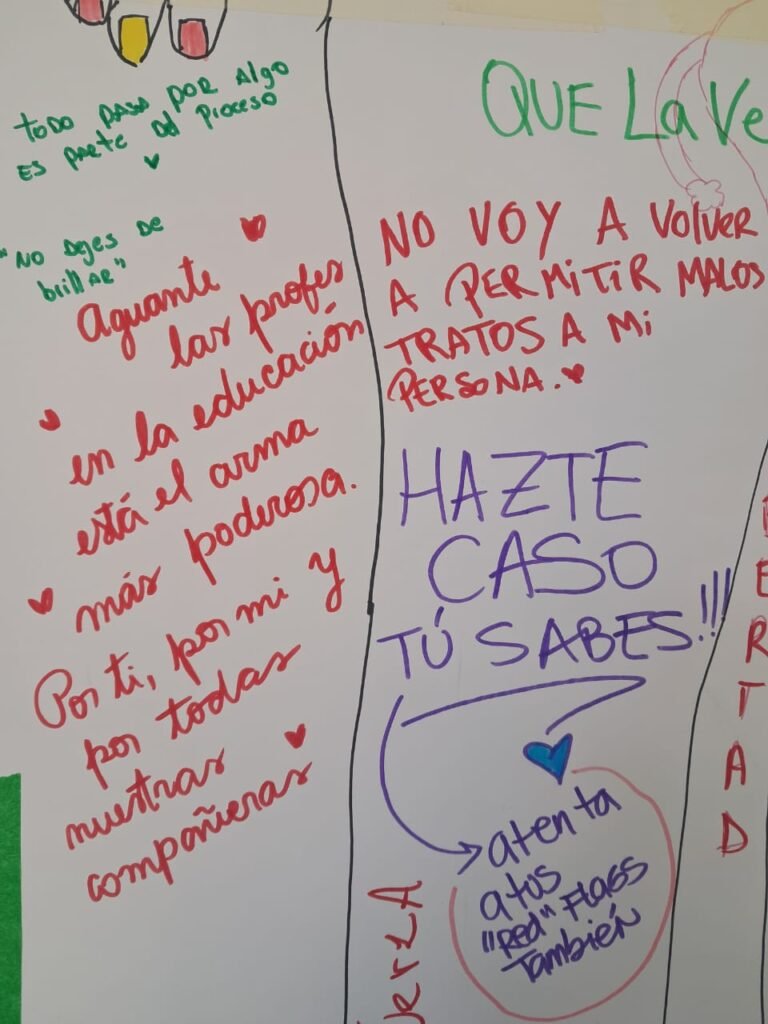 TODO PASA POR Algo
ES PARTE DEL PROCESO
"NO DEJES DE
brillAR"
Aguante
las profes
en la educación
está el arma
más poderosa.
Por ti, por mi y
por todas
nuestras
compañeras
QUE La Ve
NO VOY A VOlVER
A PERMITIR MALOS
TRATOS A Mi
PERSONA.
HAZTE
CASO
TÚ SABES!!!
atenta
atus
"Red" FLAGS
También
ERTAD